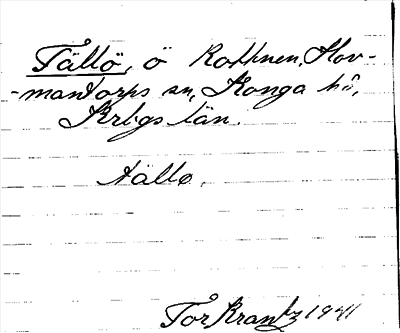 Tällö, ö Rottnen, Hov-
-mantorps sn, Konga hd,
Krbgs län.
tällo.
Tor Krantz 1941